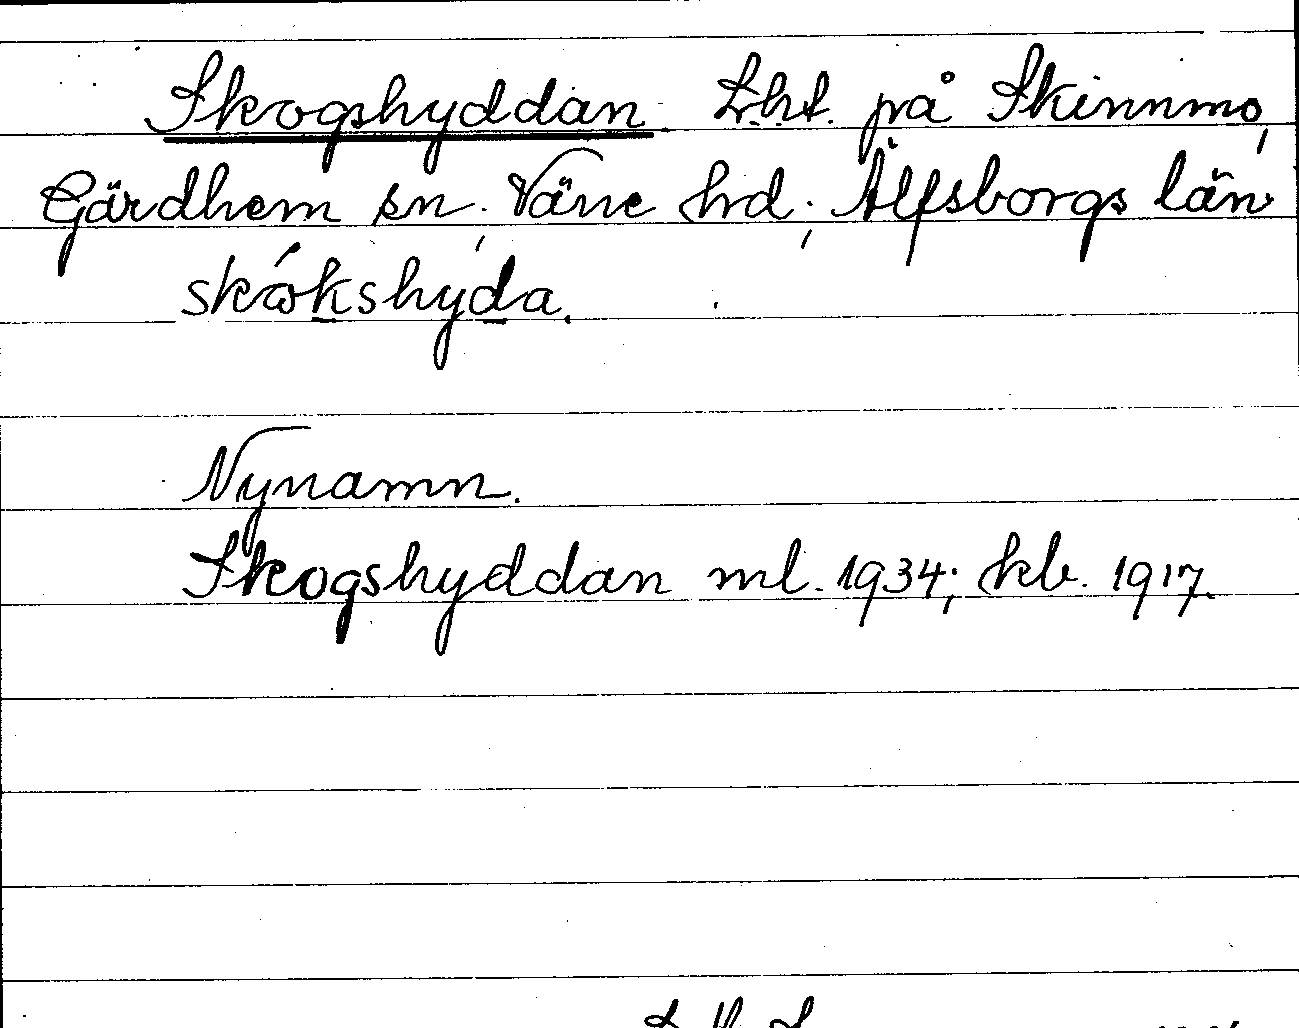 Skogshyddan. Lht. på Skinnmo,
Gärdhem sn, Väne hd, Älfsborgs län
skókshyda.
Nynamn.
Skogshyddan ml. 1934; kb. 1917.